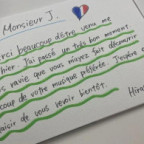 Monsieur J.
erci beaucoup d'être venu me
hier. J'ai passé un très bon moment.
ravie que vous m'ayez fait découvrir
coup de votre musique préférée. J'espère a
laisir de vous revoir bientôt.
Hira